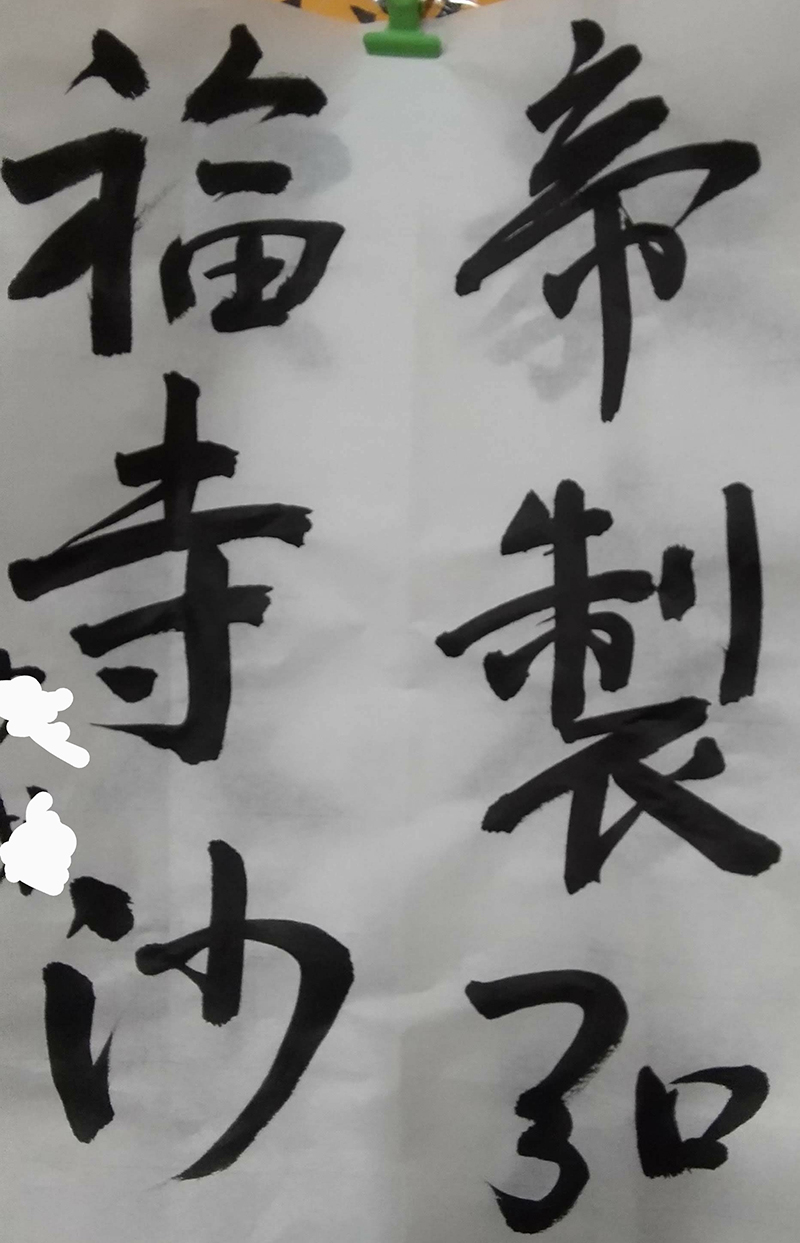 帝製弘
福寺沙